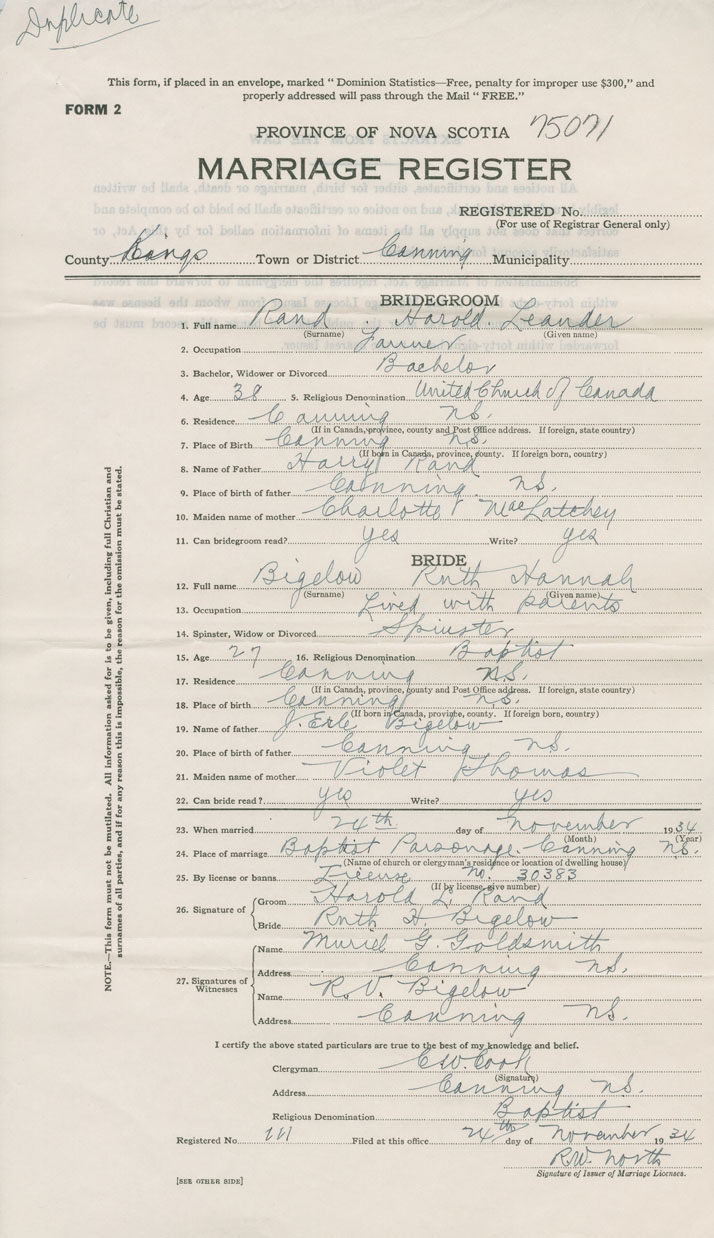 Duplicate
This form, if placed in an envelope, marked " Dominion Statistics—Free, penalty for improper use $300," and
properly addressed will pass through the Mail " FREE."
FORM 2
PROVINCE OF NOVA SCOTIA 75071
MARRIAGE REGISTER
REGISTERED No.
(For use of Registrar General only)
County Kings Town or District Canning Municipality
BRIDEGROOM
1. Full name Rand , Harold Leander
(Surname) (Given name)
2. Occupation Farmer
3. Bachelor, Widower or Divorced Bachelor
4. Age 38 5. Religious Denomination United Church of Canada
6. Residence Canning N.S.
(If in Canada, province, county and Post Office address. If foreign, state country)
7. Place of Birth Canning N.S.
(If born in Canada, province, county. If foreign born, country)
8. Name of Father Harry Rand
9. Place of birth of father Canning N.S.
10. Maiden name of mother Charlotte MacLatchey
11. Can bridegroom read? yes Write? yes
BRIDE
12. Full name Bigelow Ruth Hannah
(Surname) (Given name)
13. Occupation Lived with parents
14. Spinster, Widow or Divorced Spinster
15. Age 27 16. Religious Denomination Baptist
17. Residence Canning N.S.
(If in Canada, province, county and Post Office address. If foreign, state country)
18. Place of birth Canning N.S.
(If born in Canada, province, county. If foreign born, country)
19. Name of father J. Erle Bigelow
20. Place of birth of father Canning N.S.
21. Maiden name of mother Violet Thomas
22. Can bride read? yes Write? yes
23. When married 24th day of November 1934
(Month) (Year)
24. Place of marriage Baptist Parsonage - Canning N.S.
(Name of church or clergyman's residence or location of dwelling house)
25. By license or banns License No. 30383
(If by license, give number)
26. Signature of
Groom Harold L. Rand
Bride Ruth H. Bigelow
27. Signatures of Witnesses
Name Muriel G. Goldsmith
Address Canning N.S.
Name R.V. Bigelow
Address Canning N.S.
I certify the above stated particulars are true to the best of my knowledge and belief.
Clergyman C.W. Cook
(Signature)
Address Canning N.S.
Religious Denomination Baptist
Registered No. 111 Filed at this office 24th day of November 1934
R.W. North
Signature of Issuer of Marriage Licenses.
[SEE OTHER SIDE]
NOTE.—This form must not be mutilated. All information asked for is to be given, including full Christian and
surnames of all parties, and if for any reason this is impossible, the reason for the omission must be stated.